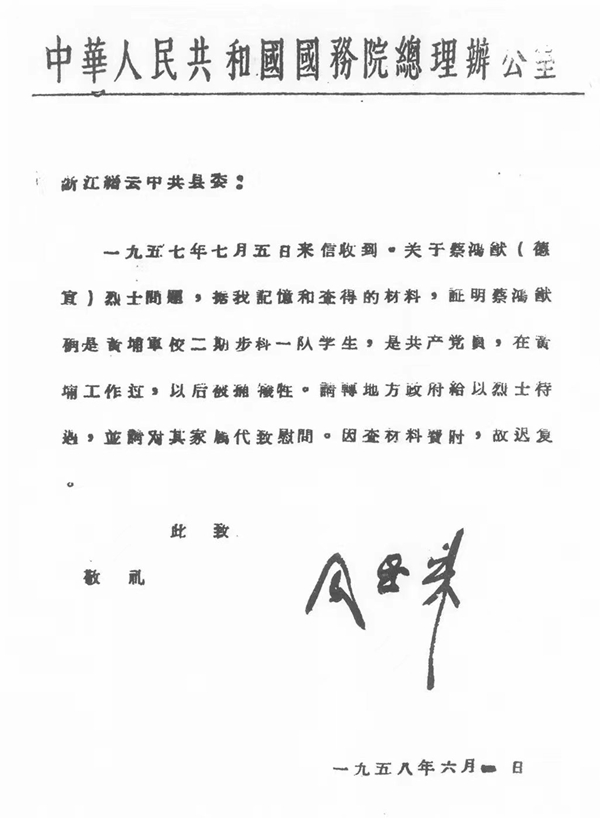 中華人民共和國國務院總理辦公室
浙江缙云中共县委：
一九五七年七月五日来信收到。关于蔡鴻猷（德
宜）烈士問題，据我記憶和查得的材料，証明蔡鴻猷
确是黃埔軍校二期步科一队学生，是共产党員，在黃
埔工作过，以后被捕犧牲。請轉地方政府給以烈士待
遇，並請对其家属代致慰問。因查材料費时，故迟复
。
此 致
敬 礼
周恩来
一九五八年六月 日